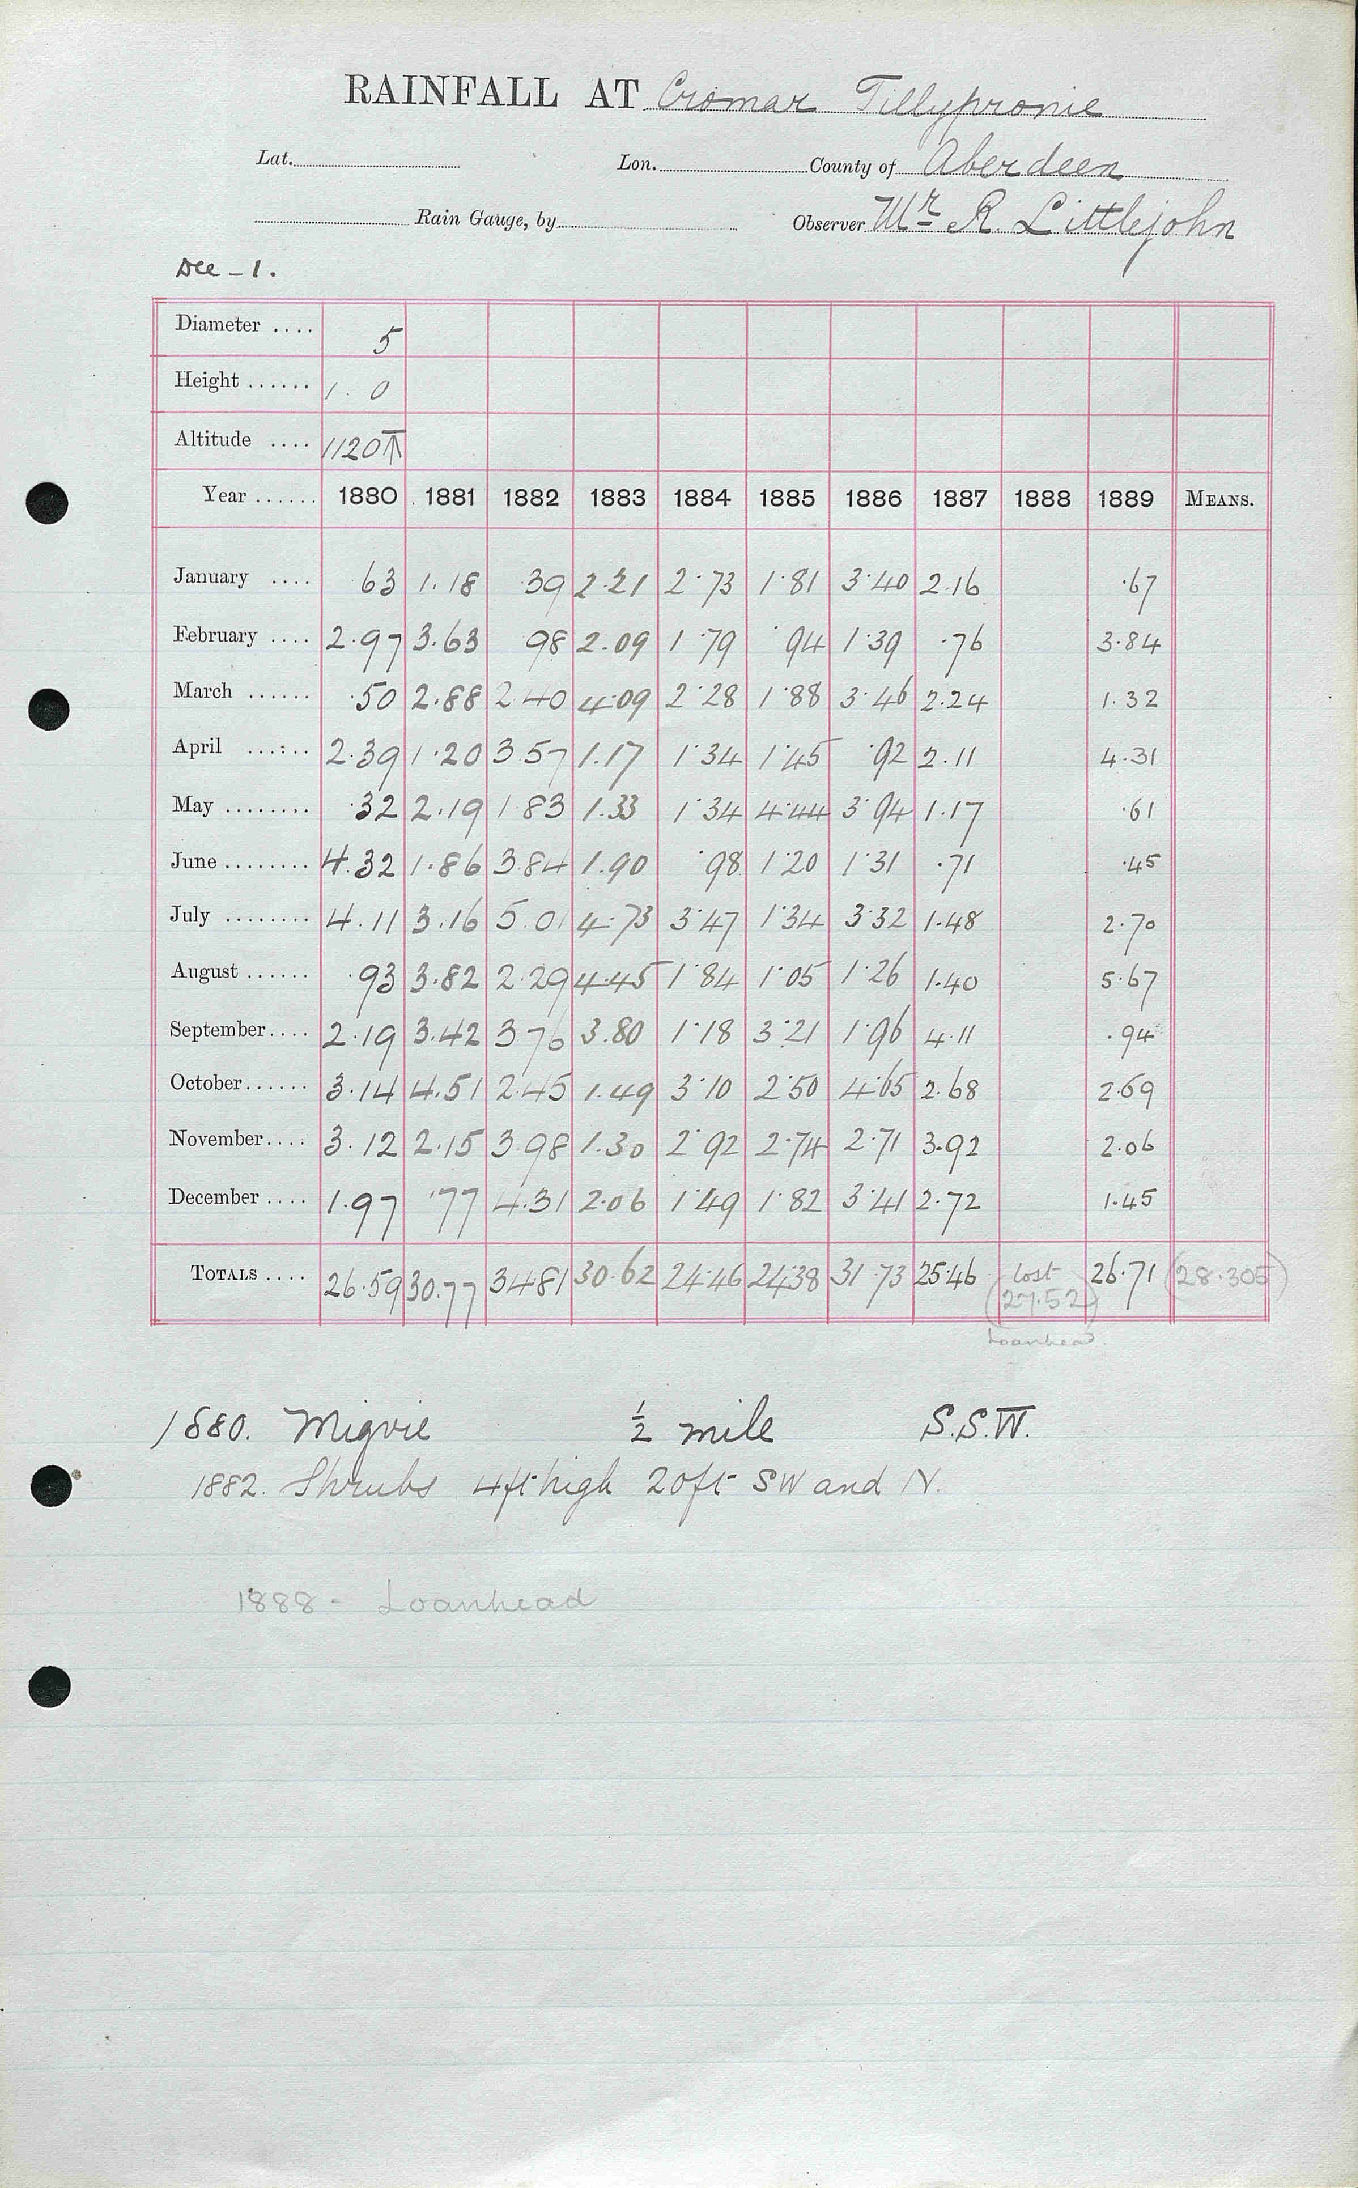 RAINFALL AT Cromar Tillypronie
Lat. Lon. County of Aberdeen
Rain Gauge, by Observer Mr R. Littlejohn
Dee - 1.
Diameter .... 5
Height ...... 1. 0
Altitude .... 1120 T
Year ...... 1880 1881 1882 1883 1884 1885 1886 1887 1888 1889 MEANS.
January .... 63 1.18 39 2.21 2.73 1.81 3.40 2.16 .67
February .... 2.97 3.63 98 2.09 1.79 .94 1.39 .76 3.84
March ...... .50 2.88 2.40 4.09 2.28 1.88 3.46 2.24 1.32
April ...... 2.39 1.20 3.57 1.17 1.34 1.45 .92 2.11 4.31
May ........ .32 2.19 1.83 1.33 1.34 4.44 3.94 1.17 .61
June ........ 4.32 1.86 3.84 1.90 .98 1.20 1.31 .71 .45
July ........ 4.11 3.16 5.01 4.73 3.47 1.34 3.32 1.48 2.70
August ...... .93 3.82 2.29 4.45 1.84 1.05 1.26 1.40 5.67
September.... 2.19 3.42 3 76 3.80 1.18 3.21 1.96 4.11 .94
October...... 3.14 4.51 2.45 1.49 3.10 2.50 4.65 2.68 2.69
November.... 3.12 2.15 3.98 1.30 2.92 2.74 2.71 3.92 2.06
December .... 1.97 .77 4.31 2.06 1.49 1.82 3.41 2.72 1.45
TOTALS .... 26.59 30.77 34.81 30.62 24.46 24.38 31.73 25.46 lost 26.71 (28.305)
(27.52)
Loanhead.
1880. Migvie ½ mile S.S.W.
1882. Shrubs 4ft high 20ft SW and N.
1888 - Loanhead